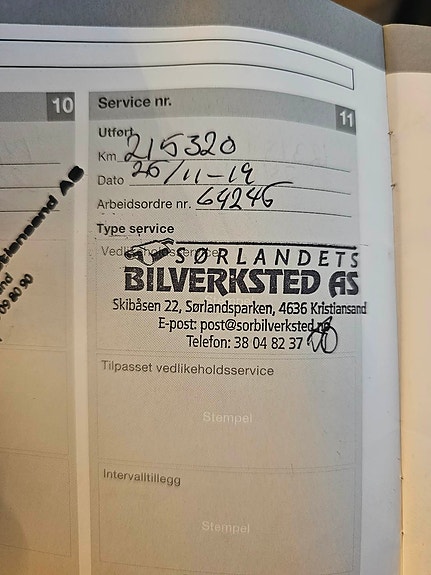 10
Service nr.
11
Utført
Km 215320
Dato 26/11-19
Arbeidsordre nr. 64246
Type service
Vedlikeholdsservice
SØRLANDETS
BILVERKSTED AS
Skibåsen 22, Sørlandsparken, 4636 Kristiansand
E-post: post@sorbilverksted.no
Telefon: 38 04 82 37
Tilpasset vedlikeholdsservice
Stempel
Intervalltillegg
Stempel
tiansand AS
09 80 90